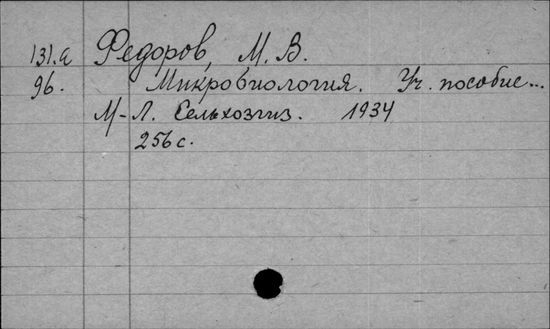 131.а Федоров, М. В.
96. Микробиология. Уч. пособие...
М-Л. Сельхозгиз. 1934
256 с.